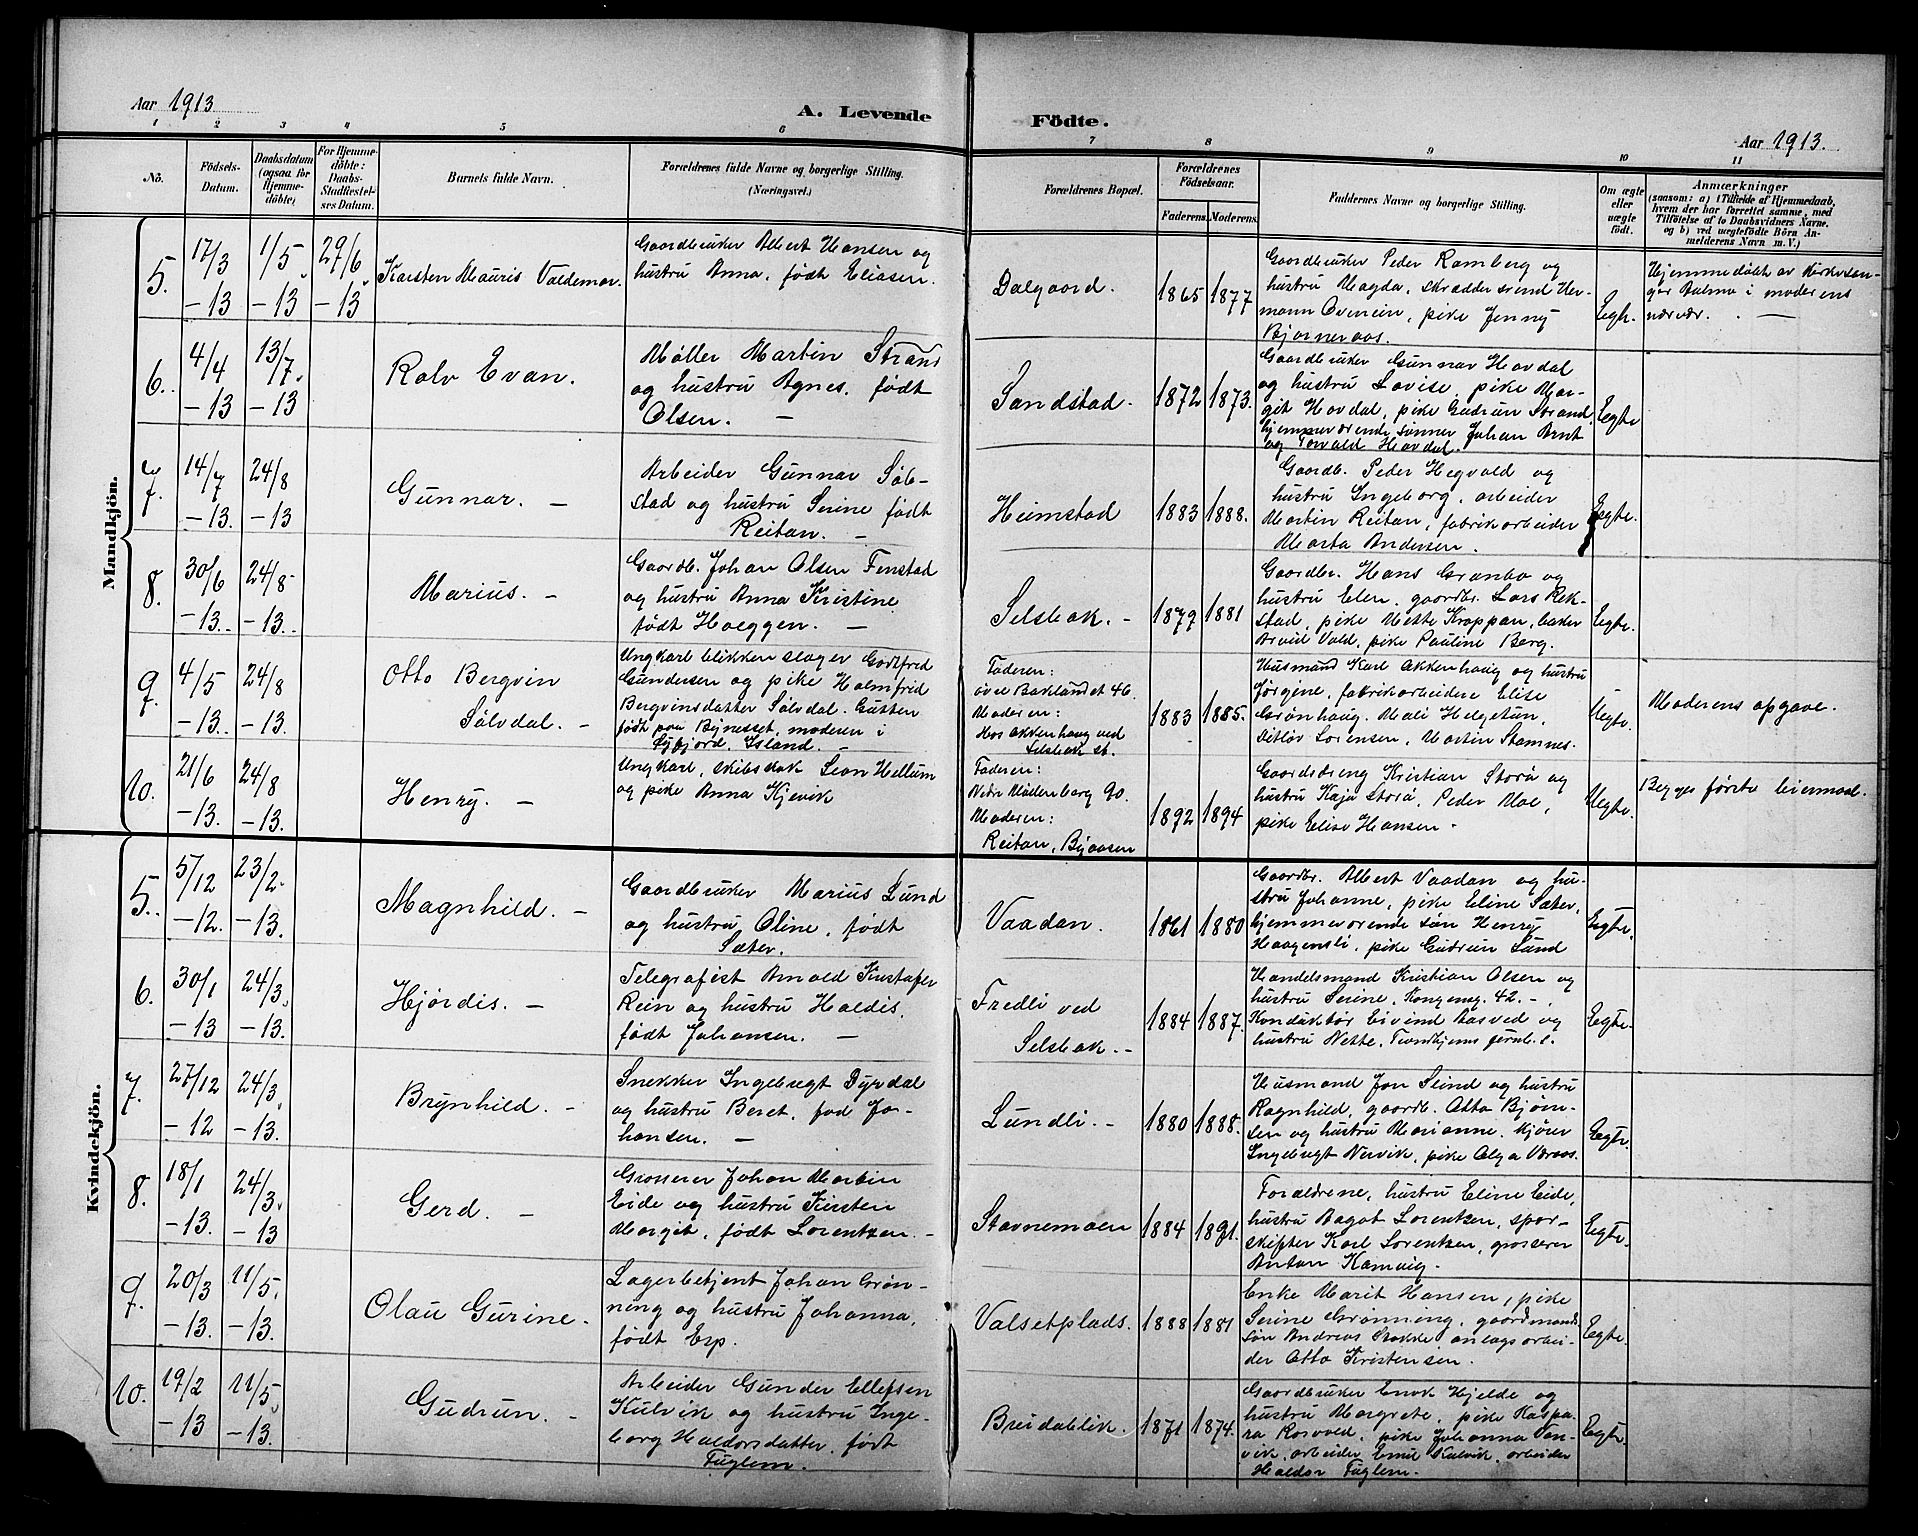 Aar 1913
A. Levende
Födte.
Aar 1913.
1 2 3 4 5 6 7 8 9 10 11
No.
Födsels-
Datum.
Daabsdatum
(ogsaa for
Hjemme-
döbte)
For Hjemme-
döbte:
Daabs-
Stadfæstel-
ses Datum.
Barnets fulde Navn.
Forældrenes fulde Navne og borgerlige Stilling.
(Næringsvei.)
Forældrenes Bopæl.
Forældrenes
Födselsaar.
Faderens.
Moderens.
Faddernes Navne og borgerlige Stilling.
Om ægte
eller
uægte
födt.
Anmærkninger
(saasom: a) i Tilfælde af Hjemmedaab,
hvem der har forrettet samme, med
Tilföielse af to Daabsvidners Navne.
og b) ved uægtefödte Börn An-
melderens Navn m. V.)
Mandkjön.
5.
17/3
-13
1/5
-13
29/6
-13
Karsten Mauris Valdemar.
Gaardbruker Albert Hansen og
hustru Anna, født Eliasen.
Dalgaard.
1865
1877
Gaardbruker Peder Ramberg og
hustru Magda, skræddersvend Her-
mann Ovenein, pike Jenny
Bjørneraas.
Egte.
Hjemmedøbt av kirkesan-
ger Balmo i moderens
nærvær. —
6.
4/4
-13
13/7
-13
Rolv Evan.
Møller Martin Strand
og hustru Agnes, født
Olsen. —
Sandstad.
1872
1873.
Gaardbruker Gunnar Hovdal
og hustru Lovise, pike Mar-
git Hovdal, pike Gudrun Strand
hjemmeværende sønner Johan Arnt
og Torvald Hovdal.
Egte
7.
14/7
-13.
24/8
-13
Gunnar. —
Arbeider Gunnar Søb-
stad og hustru Serine født
Reitan. —
Heimstad
1883
1888.
Gaardb. Peder Hegvold og
hustru Ingeborg, arbeider
Martin Reitan, fabrikarbeider
Marta Andersen.
Egte.
8.
30/6
-13.
24/8
-13.
Marius. —
Gaardb. Johan Olsen Fenstad
og hustru Anna Kristine
født Hoeggen. —
Selsbak. —
1879
1881
Gaardbr. Hans Granbo og
hustru Elen, gaardbr. Lars Rek-
stad, pike Mette Kroppan, baker
Arvid Vold, pike Pauline Berg.
Egte.
9.
4/5
-13.
24/8
-13.
Otto Bergvin
Sølvdal. —
Ungkarl blikkenslager Godtfred
Gundersen og pike Holmfrid
Bergvinsdatter Sølvdal. Gutten
født paa Bynesset, moderen i
Øfjord, Island. —
Faderen:
øvre Baklandet 46.
Moderen:
Hos Akkenhaug ved
Selsbak st.
1883
1885.
Husmand Karl Akkenhaug og hustru
Jørgine, fabrikarbeidere Elise
Grønhaug. Mali Helgetun,
Ditløv Sorensen, Martin Stamnes.
Uegte.
Moderens opgave.
10.
21/6
-13.
24/8
-13.
Henry. —
Ungkarl, skibsdæk Leon Hellum
og pike Anna Kjevik
Faderen:
Nedr Møllenberg 90.
Moderen:
Reitan, Bjaasen
1892
1894
Gaardsdreng Kristian Storø og
hustru Kaja Storø, Peder Moe,
pike Elise Hansen -
Uegte.
Begges første leiermaal.
Kvindekjön.
5.
5/12
-12.
23/2
-13.
Magnhild. —
Gaardbruker Marius Lund
og hustru Oline, født
Sæter.
Vaadan.
1861
1880
Gaardbr. Albert Vaadan og hu-
stru Johanne, pike Eline Sæter,
hjemmeværende søn Henry
Haagensli, pike Gudrun Lund
Egte.
6.
30/1
-13
24/3.
-13.
Hjørdis. —
Telegrafist Arnold Kristofer
Rein og hustru Haldis,
født Johansen. —
Fredli ved
Selsbak. -
1884
1887.
Handelsmand Kristian Olsen og
hustru Serine, Kongensg. 42. -
Konduktør Eivind Aasved og
hustru Nette, Trondhjems jernb. s.
Egte.
7.
27/12
-12
24/3.
-13.
Brynhild. —
Snekker Ingebregt Dyrdal
og hustru Beret, fød Jo-
hansen. —
Lundli. -
1880
1888.
Husmand Jon Leind og hustru
Ragnhild, gaardb. Otto Bjørn-
sen og hustru Marianne. Kjører
Ingebrigt Nervik, pike Olga Væraas.
Egte.
8.
18/1
-13.
24/3.
-13
Gerd. —
Grosserer Johan Martin
Eide og hustru Kirsten
Margit, født Lorentzen. -
Stavnemoen
1884
1891.
Forældrene, hustru Eline Eide,
hustru Dagot Lorentzen, spor-
skifter Karl Lorentzen, grosserer
Anton Kamvig.
Egte.
9.
20/3
-13.
11/5.
-13.
Olau Gurine.
Lagerbetjent Johan Grøn-
ning og hustru Johanna,
født Erp.
Valsetplads.
1888
1881
Enke Marit Hansen, pike
Serine Grønning, gaardmands-
søn Andreas Stokke anlægsarbei-
der Otto Kristensen.
Egte.
10.
19/2
-13
11/5.
-13.
Gudrun. —
Arbeider Gunder Ellefsen
Kulvik og hustru Inge-
borg Haldorsdatter, født
Fuglem.
Breidablik.
1871
1874.
Gaardbruker Enok Hjelde og
hustru Margrete, pike Kaspa-
ra Rosvold, pike Johanna Tan-
vik, arbeider Emil Kulvik, arbeider
Haldor Fuglem.
Egte.